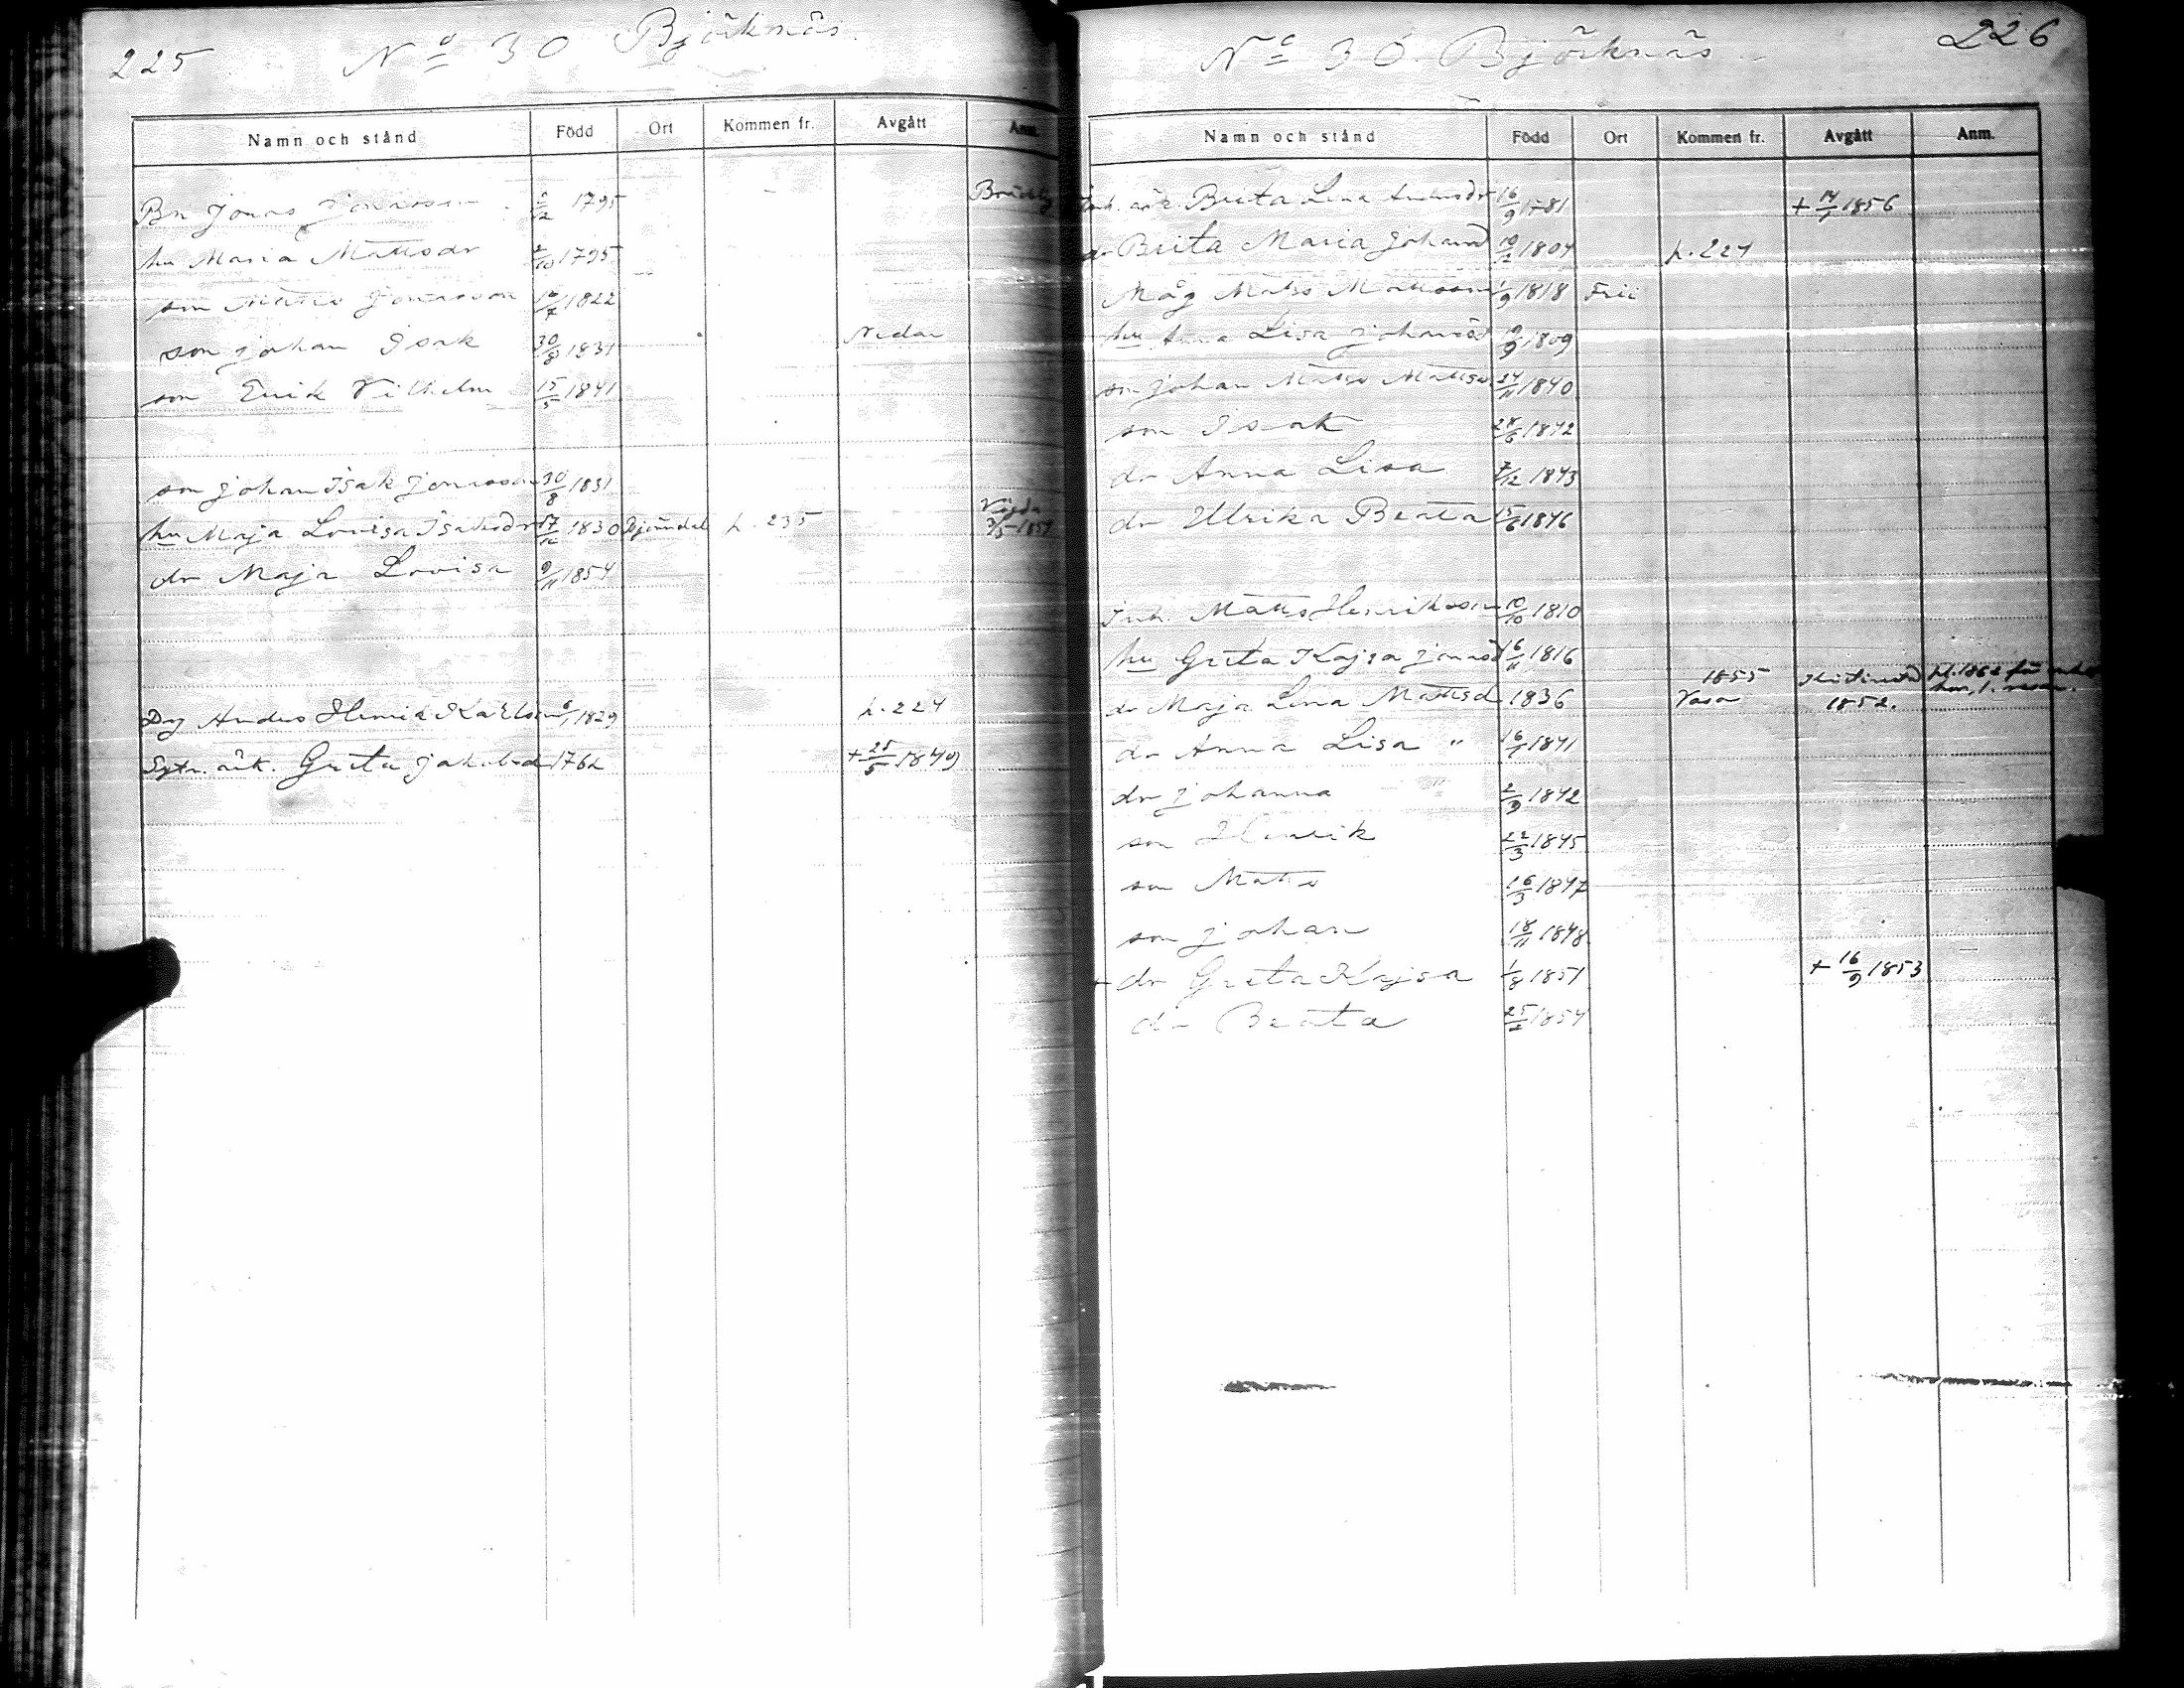 225
No 30 Björknäs
Namn och stånd Född Ort Kommen fr. Avgått Anm.
Bn Jonas Jonasson 1795
hu Maria Mattsdr 2/10 1795
son Matts Jonasson 1822
son Johan Isak 30/8 1831 Nedan
son Erik Vilhelm 15/5 1841
son Johan Isak Jonasson 30/8 1831
hu Maja Lovisa Isaksdr 17/12 1830 p. 235 Vigda 1854
dr Maja Lovisa 9/11 1854
Drg Anders Henrik Karlsson 1829 p. 224
Sytn. änk. Greta Jakobsd 1762 + 25/5 1849
226
No 30 Björknäs
Namn och stånd Född Ort Kommen fr. Avgått Anm.
Inh. änk. Brita Lena Andersdr 16/9 1781 + 14/1 1856
dr Brita Maria Johansd 10/12 1804 p. 224
Måg Matts Mattsson 1/9 1818
hu Anna Lisa Johansd 9/9 1809
son Johan Matts Mattss. 24/11 1840
son Isak 28/6 1842
dr Anna Lisa 7/12 1843
dr Ulrika Beata 15/6 1846
Inh. Matts Henriksson 10/10 1810
hu Greta Kajsa Jonasd 16/11 1816
dr Maja Lena Mattsd 1836 1855 Vasa Kristinestad 1852.
dr Anna Lisa " 16/1 1841
dr Johanna " 2/9 1842
son Henrik 22/3 1845
son Matts 16/3 1847
son Johan 18/11 1848
+ dr Greta Kajsa 1/8 1851 + 16/9 1853
dr Beata 25/2 1854